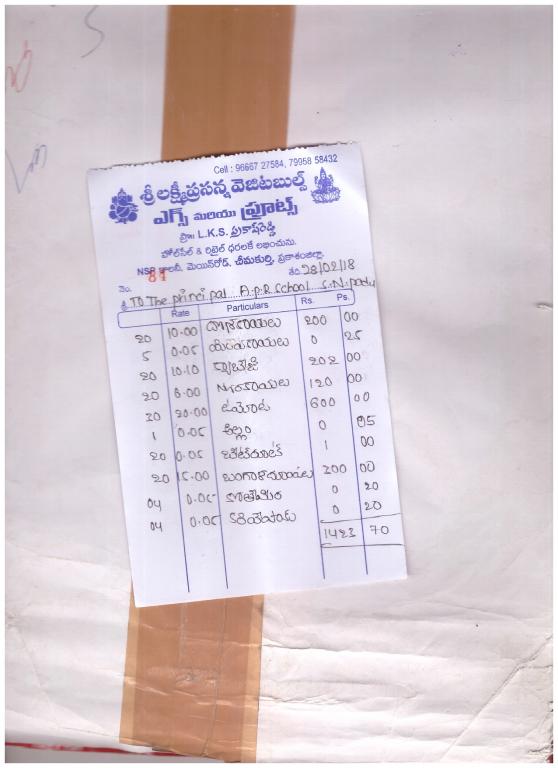 Cell : 96667 27584, 79958 58432
శ్రీ లక్ష్మీప్రసన్న వెజిటబుల్స్
ఎగ్స్ మరియు ఫ్రూట్స్
ప్రొ॥ L.K.S. ప్రకాష్‌రెడ్డి
హోల్‌సేల్ & రిటైల్ ధరలకే లభించును.
NSP కాలనీ, మెయిన్‌రోడ్, చీమకుర్తి, ప్రకాశంజిల్లా.
నెం. 81 తేది. 28/02/18
శ్రీ To The principal A.P.R School S.N. padu
Rate Particulars Rs. Ps.
20 10.00 దోసకాయలు 200 00
5 0.05 0 25
20 10.10 క్యాబేజి 202 00
20 6.00 120 00
30 20.00 టమోట 600 00
1 0.05 అల్లం 0 05
20 0.05 బీట్‌రూట్ 1 00
20 15.00 బంగాళదుంపలు 300 00
04 0.05 కొతిమిర 0 20
04 0.05 కరివేపాకు 0 20
1423 70